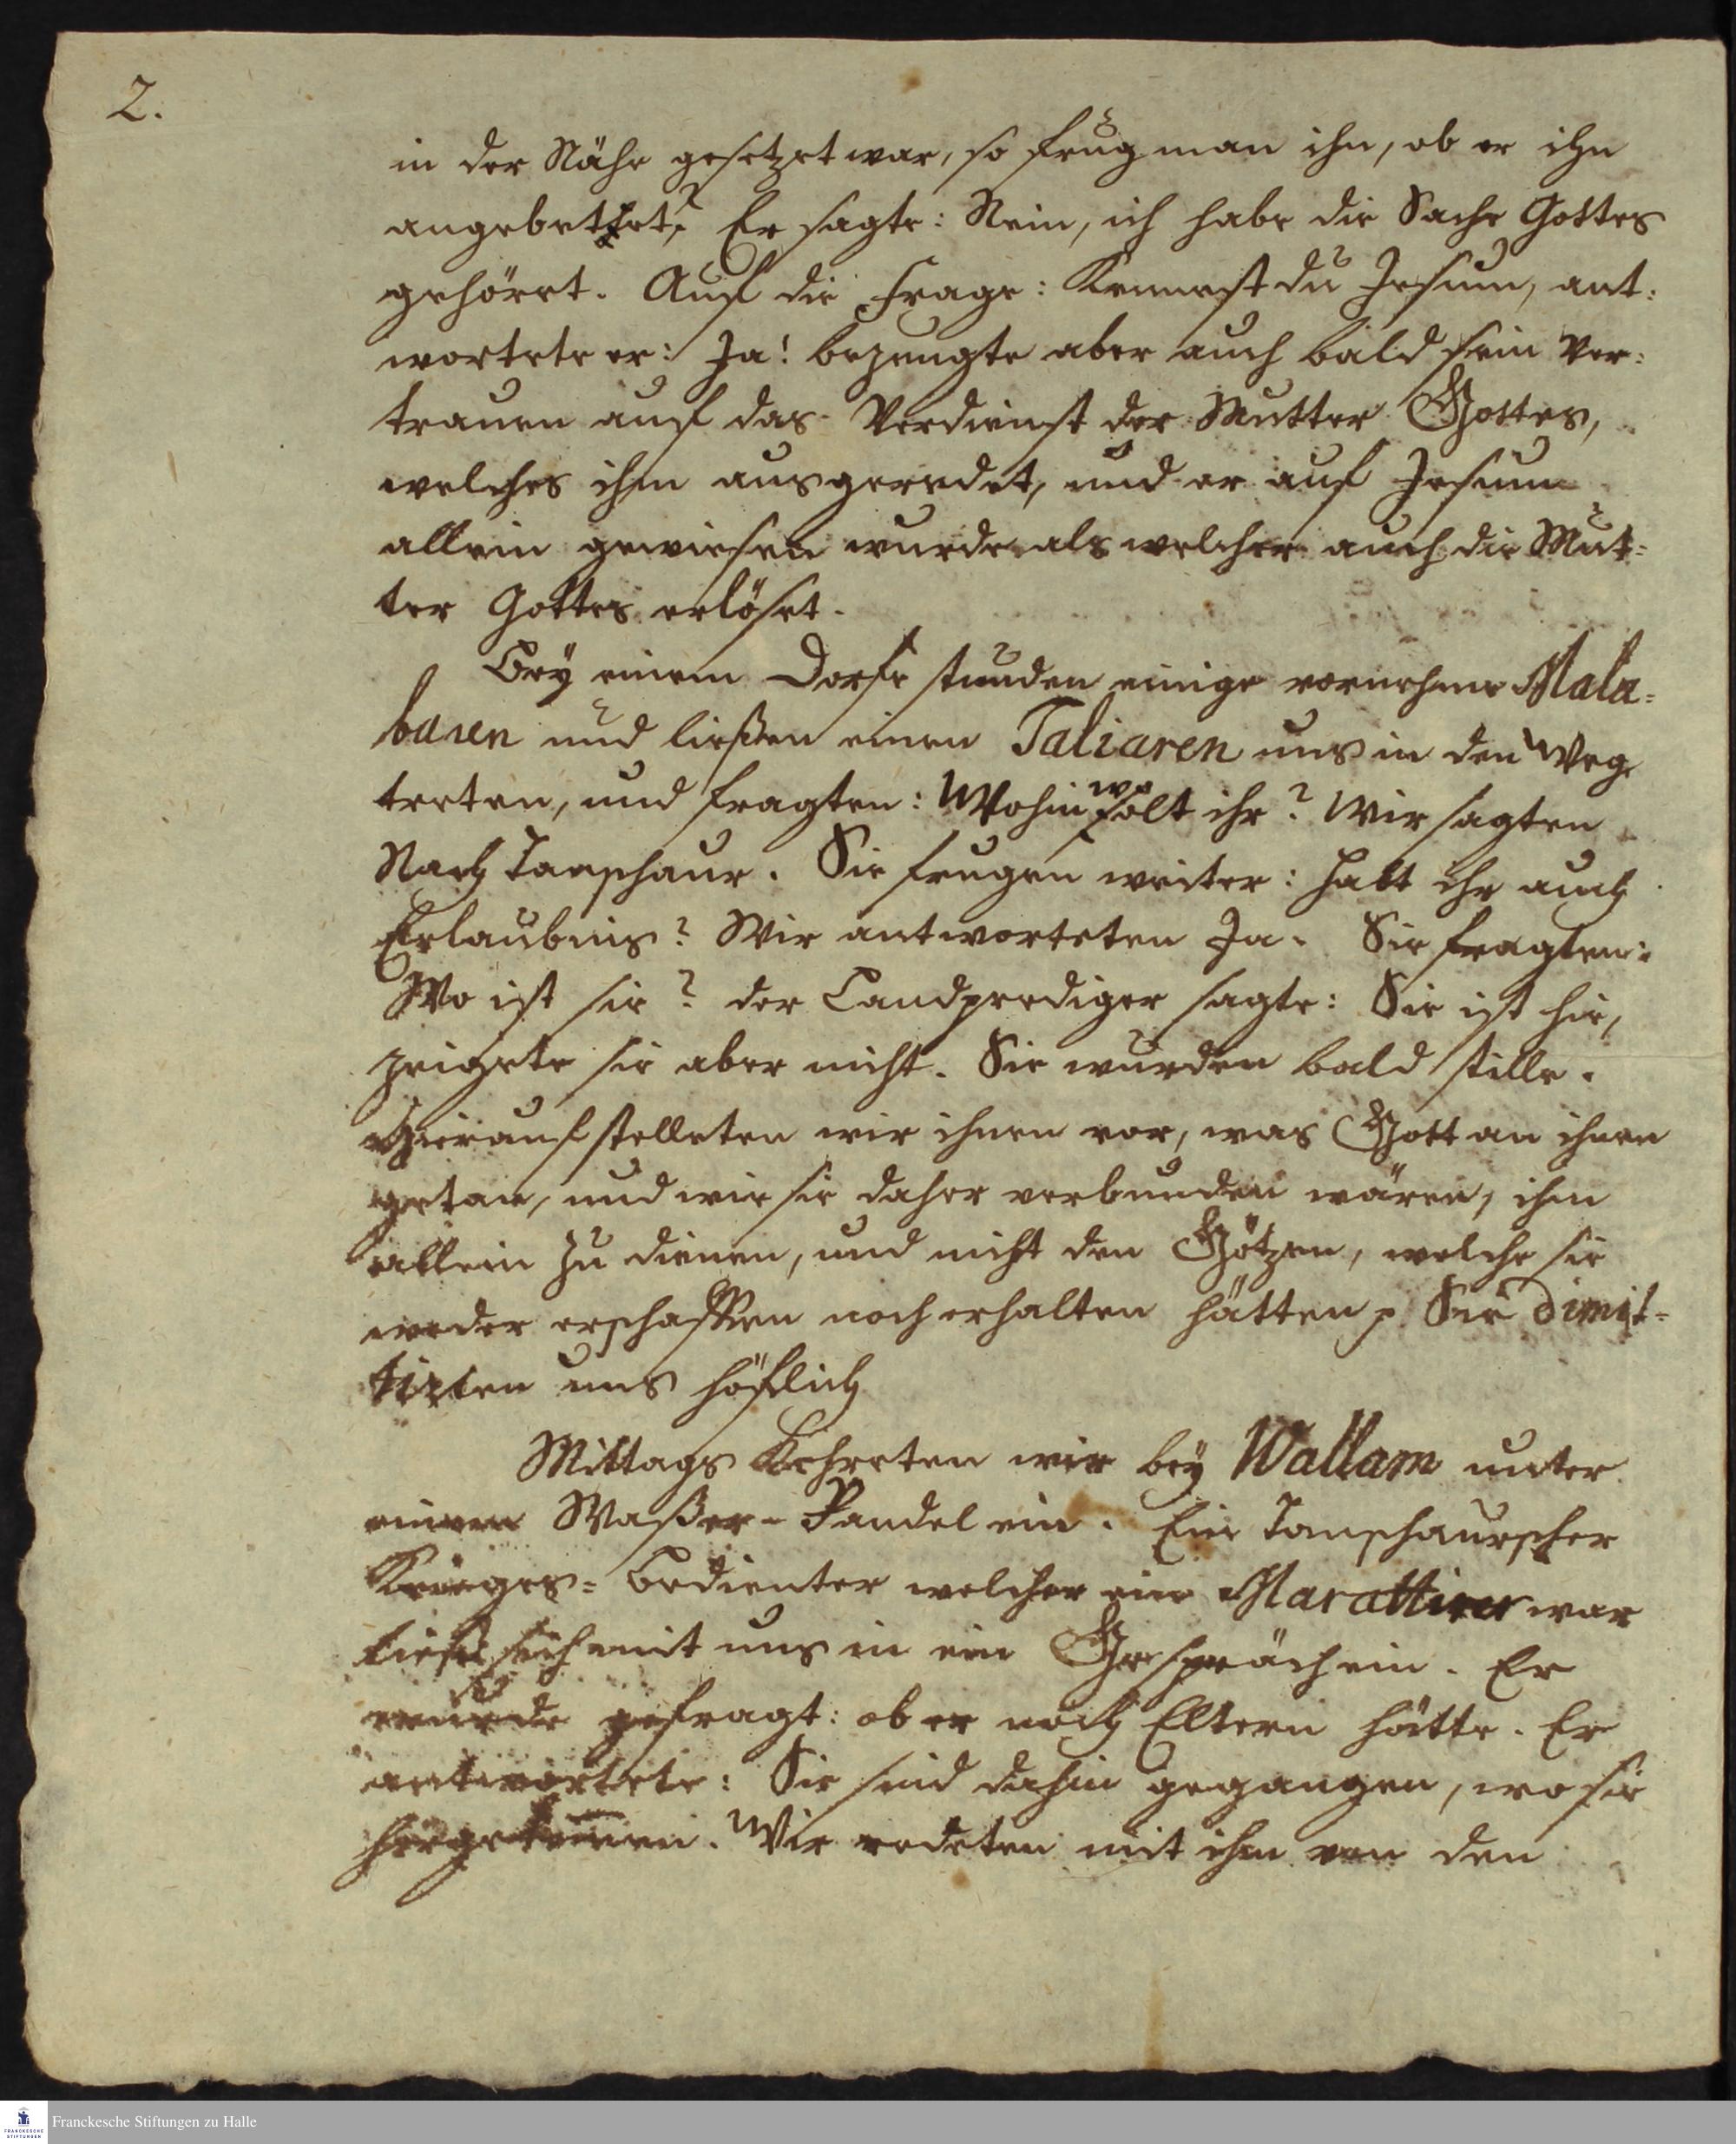 2.
in der Nähe gesetzet war, so frug man ihn, ob er ihn
angebetet? Er sagte: Nein, ich habe die Sache Gottes
gehöret. Auf die Frage: Kennest du Jesum, ant:
wortete er: Ja! bezeugte aber auch bald sein Ver:
trauen auf das Verdienst der Mutter Gottes,
welches ihm ausgeredet, und er auf Jesum
allein gewiesen wurde als welcher auch die Mut=
ter Gottes erlöset.
Bey einem Dorfe stunden einige vornehme Mala=
baren und ließen einen Taliaren uns in den Weg
treten, und fragten: Wohin wolt ihr? Wir sagten
Nach Tanschaur. Sie frugen weiter: habt ihr auch
Erlaubnis? Wir antworteten Ja. Sie fragten:
Wo ist sie? der Landprediger sagte: Sie ist hie,
zeigete sie aber nicht. Sie wurden bald stille.
Hierauf stelleten wir ihnen vor, was Gott an ihnen
getan, und wie sie daher verbunden wären, ihm
allein zu dienen, und nicht den Götzen, welche sie
weder erschaffen noch erhalten hätten p. Sie dimit=
tirten uns höflich
Mittags kehreten wir bey Wallam unter
einen Waßer=Pandel ein. Ein Tanschaurscher
Krieges=Bedienter welcher ein Marattier war
ließ sich mit uns in ein Gespräch ein. Er
wurde gefragt: ob er noch Eltern hätte. Er
antwortete: Sie sind dahin gegangen, wo sie
hergekommen. Wir redeten mit ihm von den
Franckesche Stiftungen zu Halle
FRANCKESCHE
STIFTUNGEN